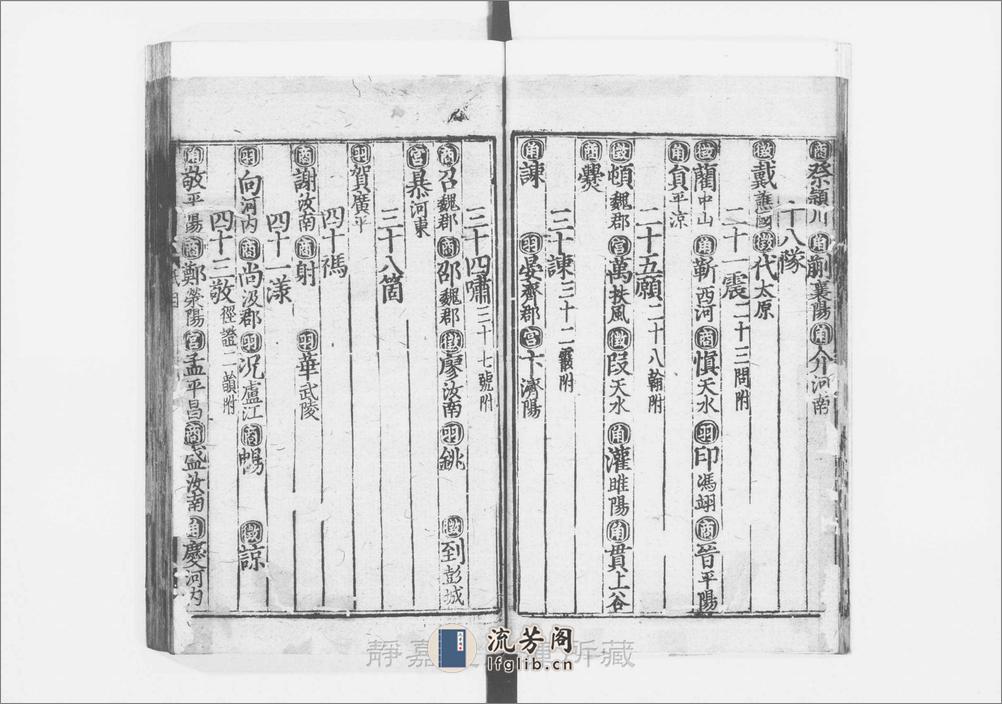 商祭潁川角蒯襄陽角介河南
十八隊
徵戴譙國徵代太原
二十一震二十三問附
徵藺中山角靳西河商慎天水羽印馮翊商晉平陽
角負平涼
二十五願二十八翰附
徵頓魏郡宮萬扶風徵段天水角灌雎陽角貫上谷
商爨
三十諫三十二霰附
角諫 羽晏齊郡宮卞濟陽
三十四嘯三十七號附
商召魏郡商邵魏郡徵廖汝南羽銚 徵到彭城
宮暴河東
三十八箇
羽賀廣平
四十禡
商謝汝南商射 羽華武陵
四十一漾
羽向河內商尚汲郡羽況廬江商暢 徵諒
四十三敬徑證二韻附
角敬平陽商鄭滎陽宮孟平昌商盛汝南角慶河內
靜嘉 所藏
流芳阁
lfglib.cn